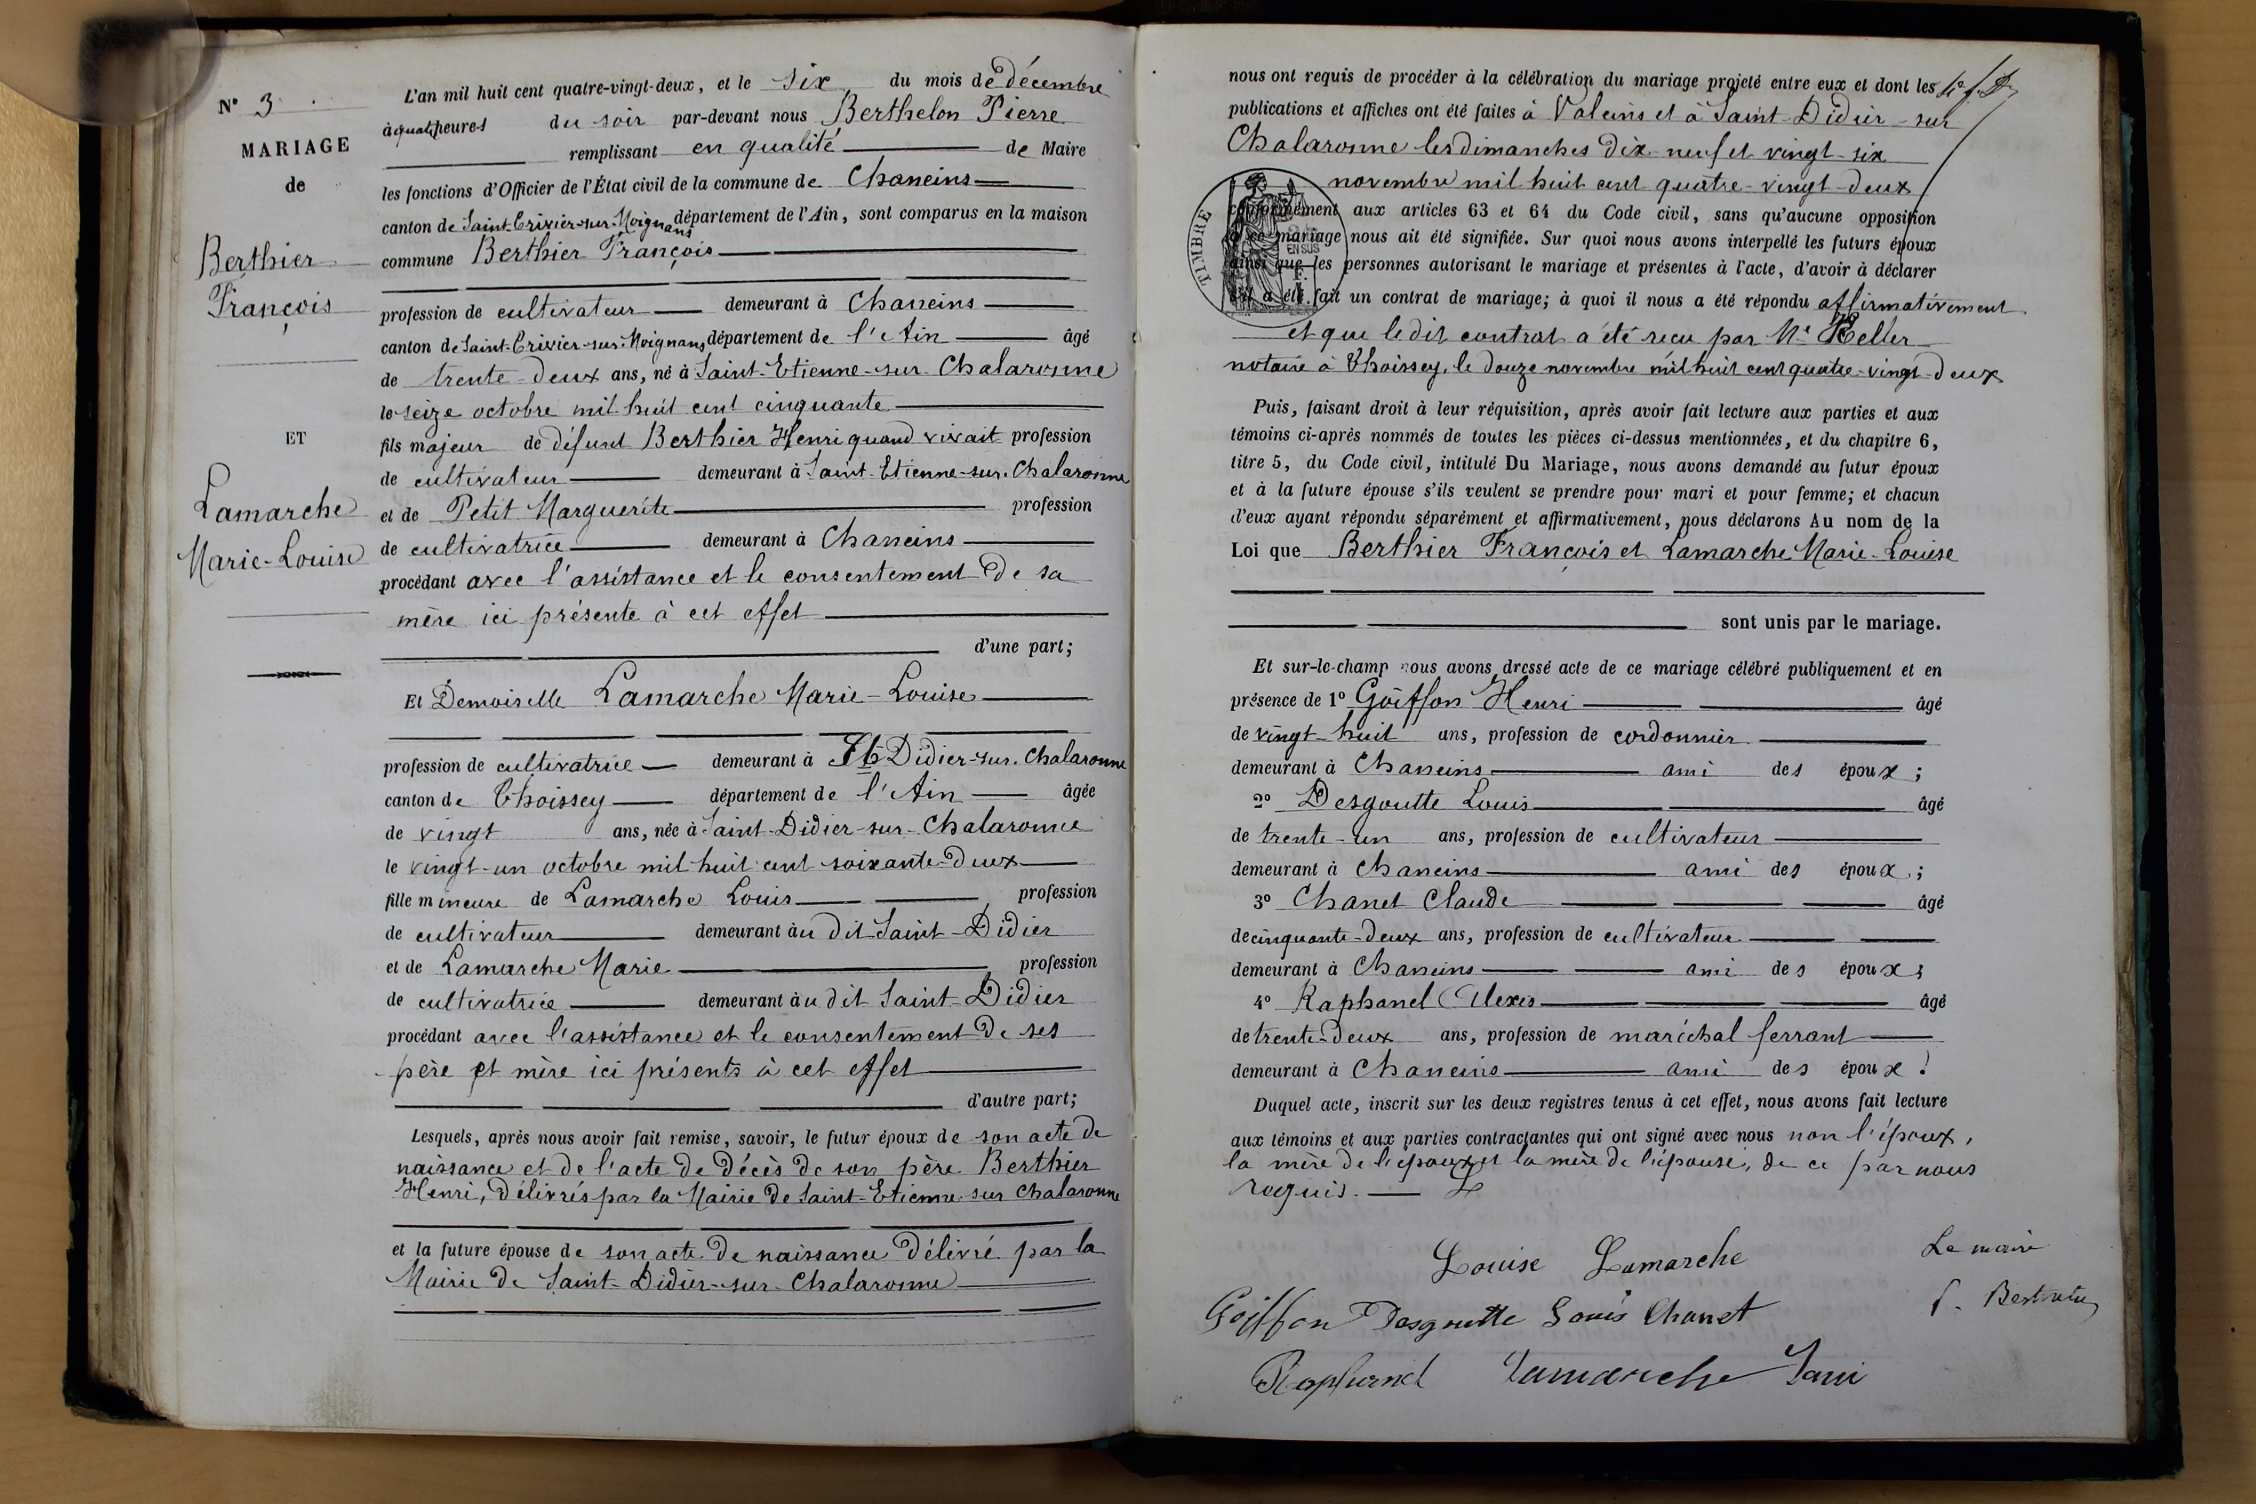 N° 3
MARIAGE
de
Berthier
François
ET
Lamarche
Marie-Louise
L'an mil huit cent quatre-vingt-deux, et le six du mois de décembre
à quatre heures du soir par-devant nous Berthelon Pierre
remplissant en qualité de Maire
les fonctions d'Officier de l'État civil de la commune de Chaneins
canton de Saint-Trivier-sur-Moignans département de l'Ain, sont comparus en la maison
commune Berthier François
profession de cultivateur demeurant à Chaneins
canton de Saint-Trivier-sur-Moignans département de l'Ain âgé
de trente-deux ans, né à Saint-Etienne-sur-Chalaronne
le seize octobre mil huit cent cinquante
fils majeur de défunt Berthier Henri quand vivait profession
de cultivateur demeurant à Saint-Etienne-sur-Chalaronne
et de Petit Marguerite profession
de cultivatrice demeurant à Chaneins
procédant avec l'assistance et le consentement de sa
mère ici présente à cet effet
d'une part;
Et Demoiselle Lamarche Marie-Louise
profession de cultivatrice demeurant à St Didier-sur-Chalaronne
canton de Thoissey département de l'Ain âgée
de vingt ans, née à Saint-Didier-sur-Chalaronne
le vingt-un octobre mil huit cent soixante-deux
fille mineure de Lamarche Louis profession
de cultivateur demeurant au dit Saint-Didier
et de Lamarche Marie profession
de cultivatrice demeurant au dit Saint-Didier
procédant avec l'assistance et le consentement de ses
père et mère ici présents à cet effet
d'autre part;
Lesquels, après nous avoir fait remise, savoir, le futur époux de son acte de
naissance et de l'acte de décès de son père Berthier
Henri, délivrés par la Mairie de Saint-Etienne-sur-Chalaronne
et la future épouse de son acte de naissance délivré par la
Mairie de Saint-Didier-sur-Chalaronne
nous ont requis de procéder à la célébration du mariage projeté entre eux et dont les
publications et affiches ont été faites à Valeins et à Saint-Didier-sur
Chalaronne les dimanches dix-neuf et vingt-six
novembre mil huit cent quatre-vingt-deux
TIMBRE
EN SUS
conformément aux articles 63 et 64 du Code civil, sans qu'aucune opposition
à ce mariage nous ait été signifiée. Sur quoi nous avons interpellé les futurs époux
ainsi que les personnes autorisant le mariage et présentes à l'acte, d'avoir à déclarer
s'il a été fait un contrat de mariage; à quoi il nous a été répondu affirmativement
et que le dit contrat a été reçu par Me Keller
notaire à Thoissey, le douze novembre mil huit cent quatre-vingt-deux
Puis, faisant droit à leur réquisition, après avoir fait lecture aux parties et aux
témoins ci-après nommés de toutes les pièces ci-dessus mentionnées, et du chapitre 6,
titre 5, du Code civil, intitulé Du Mariage, nous avons demandé au futur époux
et à la future épouse s'ils veulent se prendre pour mari et pour femme; et chacun
d'eux ayant répondu séparément et affirmativement, nous déclarons Au nom de la
Loi que Berthier François et Lamarche Marie-Louise
sont unis par le mariage.
Et sur-le-champ nous avons dressé acte de ce mariage célébré publiquement et en
présence de 1° Goiffon Henri âgé
de vingt-huit ans, profession de cordonnier
demeurant à Chaneins ami des époux;
2° Desgoutte Louis âgé
de trente-un ans, profession de cultivateur
demeurant à Chaneins ami des époux;
3° Chanet Claude âgé
de cinquante-deux ans, profession de cultivateur
demeurant à Chaneins ami des époux;
4° Raphanel Alexis âgé
de trente-deux ans, profession de maréchal ferrant
demeurant à Chaneins ami des époux!
Duquel acte, inscrit sur les deux registres tenus à cet effet, nous avons fait lecture
aux témoins et aux parties contractantes qui ont signé avec nous non l'époux,
la mère de l'époux et la mère de l'épouse, de ce par nous
requis.
Louise Lamarche
Le maire
Goiffon Desgoutte Louis Chanet
Raphanel Lamarche